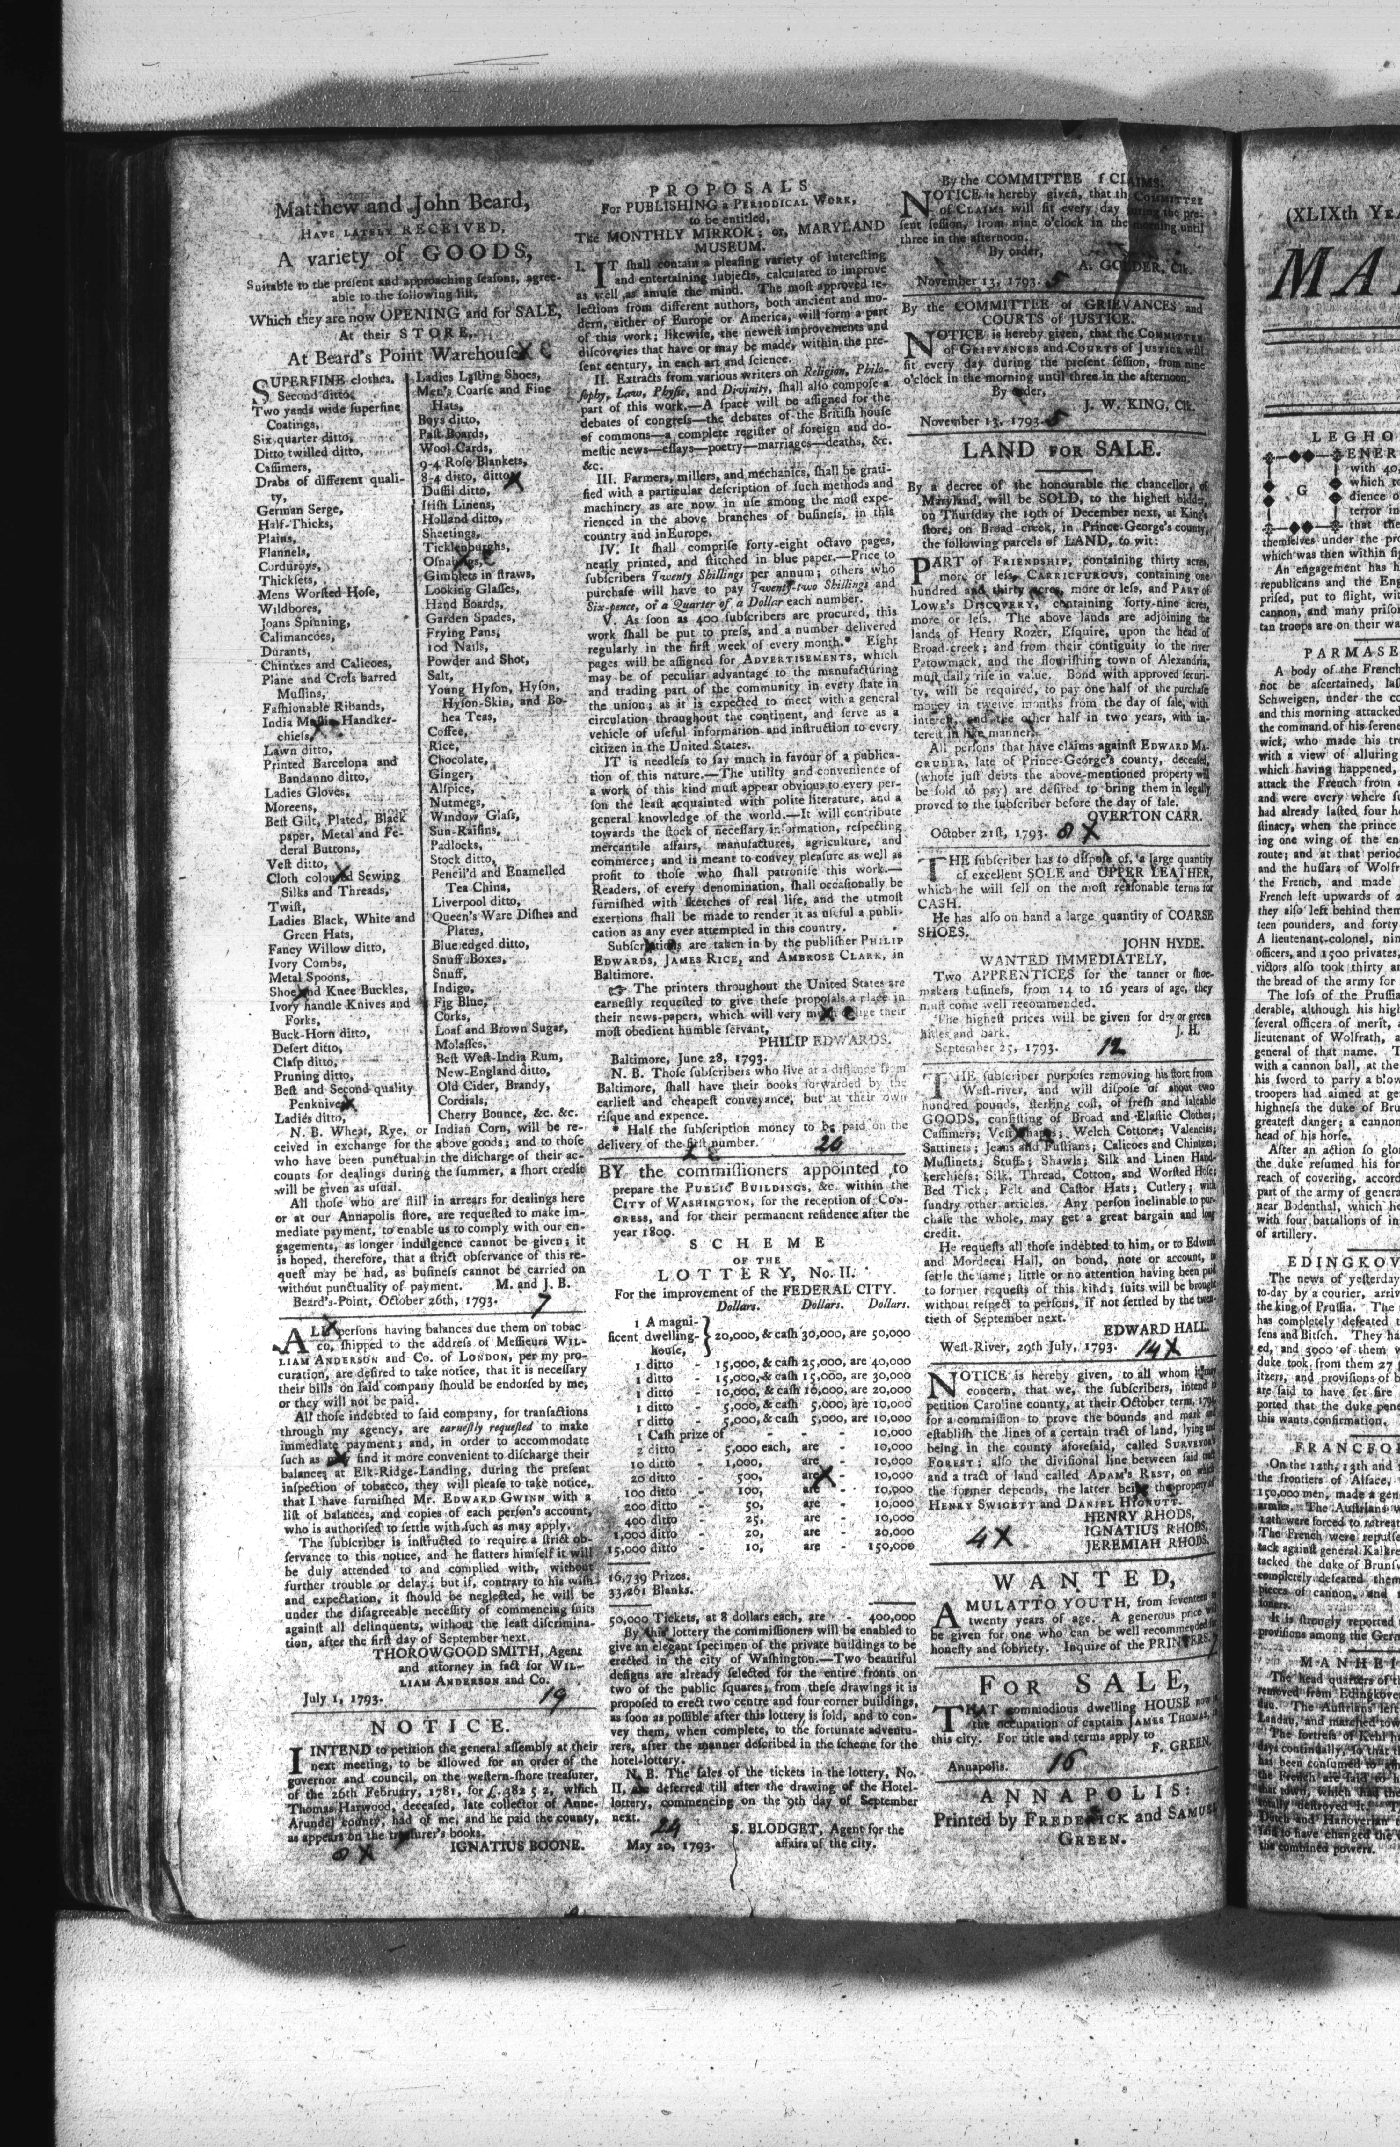 Matthew and John Beard,
HAVE LATELY RECEIVED,
A variety of GOODS,
Suitable to the present and approaching seasons, agree-
able to the following list,
Which they are now OPENING and for SALE,
At their STORE,
At Beard's Point Warehouse
SUPERFINE clothes,
Second ditto,
Two yards wide superfine
Coatings,
Six quarter ditto,
Ditto twilled ditto,
Cassimers,
Drabs of different quali-
ty,
German Serge,
Half-Thicks,
Plains,
Flannels,
Corduroys,
Thicksets,
Mens Worsted Hose,
Wildbores,
Joans Spinning,
Calimancoes,
Durants,
Chintzes and Calicoes,
Plane and Cross barred
Muslins,
Fashionable Ribands,
India Muslin Handker-
chiefs,
Lawn ditto,
Printed Barcelona and
Bandanno ditto,
Ladies Gloves,
Moreens,
Best Gilt, Plated, Black
paper, Metal and Fe-
deral Buttons,
Vest ditto,
Cloth coloured Sewing
Silks and Threads,
Twist,
Ladies Black, White and
Green Hats,
Fancy Willow ditto,
Ivory Combs,
Metal Spoons,
Shoe and Knee Buckles,
Ivory handle Knives and
Forks,
Buck-Horn ditto,
Desert ditto,
Clasp ditto,
Pruning ditto,
Best and Second quality
Penknives
Ladies ditto,
Ladies Lasting Shoes,
Men's Coarse and Fine
Hats,
Boys ditto,
Past Boards,
Wool Cards,
9-4 Rose Blankets,
8-4 ditto, ditto
Duffil ditto,
Irish Linens,
Holland ditto,
Sheetings,
Ticklenburghs,
Gimblets in straws,
Looking Glasses,
Hand Boards,
Garden Spades,
Frying Pans,
10d Nails,
Powder and Shot,
Salt,
Young Hyson, Hyson,
Hyson-Skin, and Bo-
hea Teas,
Coffee,
Rice,
Chocolate,
Ginger,
Allspice,
Nutmegs,
Window Glass,
Sun-Raisins,
Padlocks,
Stock ditto,
Pencil'd and Enamelled
Tea China,
Liverpool ditto,
Queen's Ware Dishes and
Plates,
Blue edged ditto,
Snuff Boxes,
Snuff,
Indigo,
Fig Blue,
Corks,
Loaf and Brown Sugar,
Molasses,
Best West-India Rum,
New-England ditto,
Old Cider, Brandy,
Cordials,
Cherry Bounce, &c. &c.
N. B. Wheat, Rye, or Indian Corn, will be re-
ceived in exchange for the above goods; and to those
who have been punctual in the discharge of their ac-
counts for dealings during the summer, a short credit
will be given as usual.
All those who are still in arrears for dealings here
or at our Annapolis store, are requested to make im-
mediate payment, to enable us to comply with our en-
gagements, as longer indulgence cannot be given; it
is hoped, therefore, that a strict observance of this re-
quest may be had, as business cannot be carried on
without punctuality of payment. M. and J. B.
Beard's-Point, October 26th, 1793. 7
ALL persons having balances due them on tobac-
co, shipped to the address of Messieurs WIL-
LIAM ANDERSON and Co. of LONDON, per my pro-
curation, are desired to take notice, that it is necessary
their bills on said company should be endorsed by me,
or they will not be paid.
All those indebted to said company, for transactions
through my agency, are earnestly requested to make
immediate payment; and, in order to accommodate
such as may find it more convenient to discharge their
balances at Elk-Ridge-Landing, during the present
inspection of tobacco, they will please to take notice,
that I have furnished Mr. EDWARD GWINN with a
list of balances, and copies of each person's account,
who is authorised to settle with such as may apply.
The subscriber is instructed to require a strict ob-
servance to this notice, and he flatters himself it will
be duly attended to and complied with, without
further trouble or delay; but if, contrary to his wish
and expectation, it should be neglected, he will be
under the disagreeable necessity of commencing suits
against all delinquents, without the least discrimina-
tion, after the first day of September next.
THOROWGOOD SMITH, Agent
and attorney in fact for WIL-
LIAM ANDERSON and Co.
July 1, 1793. 19
NOTICE.
I INTEND to petition the general assembly at their
next meeting, to be allowed for an order of the
governor and council, on the western-shore treasurer,
of the 26th February, 1781, for £.382 5 2, which
Thomas Harwood, deceased, late collector of Anne-
Arundel county, had of me, and he paid the county,
as appears on the treasurer's books.
8 X IGNATIUS BOONE.
PROPOSALS
For PUBLISHING a PERIODICAL WORK,
to be entitled,
The MONTHLY MIRROR; or, MARYLAND
MUSEUM.
I. IT shall contain a pleasing variety of interesting
and entertaining subjects, calculated to improve
as well as amuse the mind. The most approved se-
lections from different authors, both ancient and mo-
dern, either of Europe or America, will form a part
of this work; likewise, the newest improvements and
discoveries that have or may be made, within the pre-
sent century, in each art and science.
II. Extracts from various writers on Religion, Philo-
sophy, Law, Physic, and Divinity, shall also compose a
part of this work.—A space will be assigned for the
debates of congress—the debates of the British house
of commons—a complete register of foreign and do-
mestic news—essays—poetry—marriages—deaths, &c.
&c.
III. Farmers, millers, and mechanics, shall be grati-
fied with a particular description of such methods and
machinery as are now in use among the most expe-
rienced in the above branches of business, in this
country and in Europe.
IV. It shall comprise forty-eight octavo pages,
neatly printed, and stitched in blue paper.—Price to
subscribers Twenty Shillings per annum; others who
purchase will have to pay Twenty-two Shillings and
Six-pence, or a Quarter of a Dollar each number.
V. As soon as 400 subscribers are procured, this
work shall be put to press, and a number delivered
regularly in the first week of every month.* Eight
pages will be assigned for ADVERTISEMENTS, which
may be of peculiar advantage to the manufacturing
and trading part of the community in every state in
the union; as it is expected to meet with a general
circulation throughout the continent, and serve as a
vehicle of useful information and instruction to every
citizen in the United States.
IT is needless to say much in favour of a publica-
tion of this nature.—The utility and convenience of
a work of this kind must appear obvious to every per-
son the least acquainted with polite literature, and a
general knowledge of the world.—It will contribute
towards the stock of necessary information, respecting
mercantile affairs, manufactures, agriculture, and
commerce; and is meant to convey pleasure as well as
profit to those who shall patronise this work.—
Readers, of every denomination, shall occasionally be
furnished with sketches of real life, and the utmost
exertions shall be made to render it as useful a publi-
cation as any ever attempted in this country.
Subscriptions are taken in by the publisher PHILIP
EDWARDS, JAMES RICE, and AMBROSE CLARK, in
Baltimore.
☞ The printers throughout the United States are
earnestly requested to give these proposals a place in
their news-papers, which will very much oblige their
most obedient humble servant,
PHILIP EDWARDS.
Baltimore, June 28, 1793.
N. B. Those subscribers who live at a distance from
Baltimore, shall have their books forwarded by the
earliest and cheapest conveyance, but at their own
risque and expence.
* Half the subscription money to be paid on the
delivery of the first number. 20
BY the commissioners appointed to
prepare the PUBLIC BUILDINGS, &c. within the
CITY of WASHINGTON, for the reception of CON-
GRESS, and for their permanent residence after the
year 1800.
SCHEME
OF THE
LOTTERY, No. II.
For the improvement of the FEDERAL CITY.
Dollars. Dollars. Dollars.
1 A magni-
ficent dwelling- } 20,000, & cash 30,000, are 50,000
house,
1 ditto - 15,000, & cash 25,000, are 40,000
1 ditto - 15,000, & cash 15,000, are 30,000
1 ditto - 10,000, & cash 10,000, are 20,000
1 ditto - 5,000, & cash 5,000, are 10,000
1 ditto - 5,000, & cash 5,000, are 10,000
1 Cash prize of - - - 10,000
2 ditto - 5,000 each, are - 10,000
10 ditto - 1,000, are - 10,000
20 ditto - 500, are - 10,000
100 ditto - 100, are - 10,000
200 ditto - 50, are - 10,000
400 ditto - 25, are - 10,000
1,000 ditto - 20, are - 20,000
15,000 ditto - 10, are - 150,000
16,739 Prizes.
33,261 Blanks.
50,000 Tickets, at 8 dollars each, are - 400,000
By this lottery the commissioners will be enabled to
give an elegant specimen of the private buildings to be
erected in the city of Washington.—Two beautiful
designs are already selected for the entire fronts on
two of the public squares; from these drawings it is
proposed to erect two centre and four corner buildings,
as soon as possible after this lottery is sold, and to con-
vey them, when complete, to the fortunate adventu-
rers, after the manner described in the scheme for the
hotel-lottery.
N. B. The sales of the tickets in the lottery, No.
II, are deferred till after the drawing of the Hotel-
lottery, commencing on the 9th day of September
next. 24
S. BLODGET, Agent for the
May 20, 1793. affairs of the city.
By the COMMITTEE of CLAIMS.
NOTICE is hereby given, that the COMMITTEE
of CLAIMS will sit every day during the pre-
sent session, from nine o'clock in the morning until
three in the afternoon.
By order,
A. GOLDER, Clk.
November 13, 1793. 5
By the COMMITTEE of GRIEVANCES and
COURTS of JUSTICE.
NOTICE is hereby given, that the COMMITTEE
of GRIEVANCES and COURTS of JUSTICE will
sit every day during the present session, from nine
o'clock in the morning until three in the afternoon.
By order,
J. W. KING, Clk.
November 13, 1793. 5
LAND FOR SALE.
By a decree of the honourable the chancellor of
Maryland, will be SOLD, to the highest bidder,
on Thursday the 19th of December next, at King's
store, on Broad-creek, in Prince-George's county,
the following parcels of LAND, to wit:
PART of FRIENDSHIP, containing thirty acres,
more or less, CARRICFURGUS, containing one
hundred and thirty acres, more or less, and PART of
LOWE'S DISCOVERY, containing forty-nine acres,
more or less. The above lands are adjoining the
lands of Henry Rozer, Esquire, upon the head of
Broad-creek; and from their contiguity to the river
Patowmack, and the flourishing town of Alexandria,
must daily rise in value. Bond with approved securi-
ty, will be required, to pay one half of the purchase
money in twelve months from the day of sale, with
interest, and the other half in two years, with in-
terest in like manner.
All persons that have claims against EDWARD MA-
GRUDER, late of Prince-George's county, deceased,
(whose just debts the above-mentioned property will
be sold to pay) are desired to bring them in legally
proved to the subscriber before the day of sale.
OVERTON CARR.
October 21st, 1793. 8 X
THE subscriber has to dispose of, a large quantity
of excellent SOLE and UPPER LEATHER,
which he will sell on the most reasonable terms for
CASH.
He has also on hand a large quantity of COARSE
SHOES.
JOHN HYDE.
WANTED IMMEDIATELY,
Two APPRENTICES for the tanner or shoe-
makers business, from 14 to 16 years of age, they
must come well recommended.
The highest prices will be given for dry or green
hides and bark. J. H.
September 25, 1793. 12
THE subscriber purposes removing his store from
West-river, and will dispose of about two
hundred pounds, sterling cost, of fresh and saleable
GOODS, consisting of Broad and Elastic Clothes;
Cassimers; Vest shapes; Welch Cottons; Valencies;
Sattinets; Jeans and Fustians; Calicoes and Chintzes;
Muslinets; Stuffs; Shawls; Silk and Linen Hand-
kerchiefs; Silk, Thread, Cotton, and Worsted Hose;
Bed Tick; Felt and Castor Hats; Cutlery; with
sundry other articles. Any person inclinable to pur-
chase the whole, may get a great bargain and long
credit.
He requests all those indebted to him, or to Edward
and Mordecai Hall, on bond, note or account, to
settle the same; little or no attention having been paid
to former requests of this kind; suits will be brought
without respect to persons, if not settled by the twen-
tieth of September next.
EDWARD HALL.
West-River, 29th July, 1793. 14X
NOTICE is hereby given, to all whom it may
concern, that we, the subscribers, intend to
petition Caroline county, at their October term, 1794,
for a commission to prove the bounds and mark and
establish the lines of a certain tract of land, lying and
being in the county aforesaid, called SURVEYOR'S
FOREST; also the divisional line between said tract
and a tract of land called ADAM'S REST, on which
the former depends, the latter being the property of
HENRY SWIGETT and DANIEL HIGNUTT.
HENRY RHODS,
4X IGNATIUS RHODS,
JEREMIAH RHODS.
WANTED,
A MULATTO YOUTH, from seventeen to
twenty years of age. A generous price will
be given for one who can be well recommended for
honesty and sobriety. Inquire of the PRINTERS.
FOR SALE,
THAT commodious dwelling HOUSE now in
the occupation of captain JAMES THOMAS,
this city. For title and terms apply to
F. GREEN.
Annapolis. 16
ANNAPOLIS:
Printed by FREDERICK and SAMUEL
GREEN.
(XLIXth YE
MA
LEGHO
GENER
with 40,
which to
dience o
terror in
that the
themselves under the pro
which was then within fi
An engagement has h
republicans and the Eng
prised, put to flight, wit
cannon, and many priso
tan troops are on their wa
PARMASE
A body of the French
not be ascertained, las
Schweigen, under the co
and this morning attacked
the command of his serene
wick, who made his tr
with a view of alluring
which having happened,
attack the French from a
and were every where su
had already lasted four h
stinacy, when the prince
ing one wing of the en
route; and at that period
and the hussars of Wolfr
the French, and made
French left upwards of
they also left behind them
teen pounders, and forty-
A lieutenant-colonel, nin
officers, and 1500 privates,
victors also took thirty an
the bread of the army for
The loss of the Prussia
derable, although his high
several officers of merit, a
lieutenant of Wolfrath, a
general of that name. T
with a cannon ball, at the
his sword to parry a blow
troopers had aimed at gen
highness the duke of Bru
greatest danger; a cannon
head of his horse.
After an action so glor
the duke resumed his for
reach of covering, accord
part of the army of genera
near Bodenthal, which he
with four battalions of in
of artillery.
EDINGKOV
The news of yesterday
to-day by a courier, arriv
the king of Prussia. The
has completely defeated t
sens and Bitsch. They ha
ed, and 3900 of them w
duke took from them 27
itzers, and provisions of b
are said to have set fire
ported that the duke pene
this wants confirmation.
FRANCFO
On the 12th, 13th and
the frontiers of Alsace,
150,000 men, made a gen
armies. The Austrians w
12th were forced to retreat
The French were repulse
tack against general Kalkre
tacked the duke of Brunsw
completely defeated them
pieces of cannon, and
It is strongly reported
provisions among the Germ
MANHEI
The head quarters of th
removed from Edingkove
The Austrians left
Landau, and marched tow
The fortress of Kehl
days continually, so that
has been consumed to ash
the combined powers.